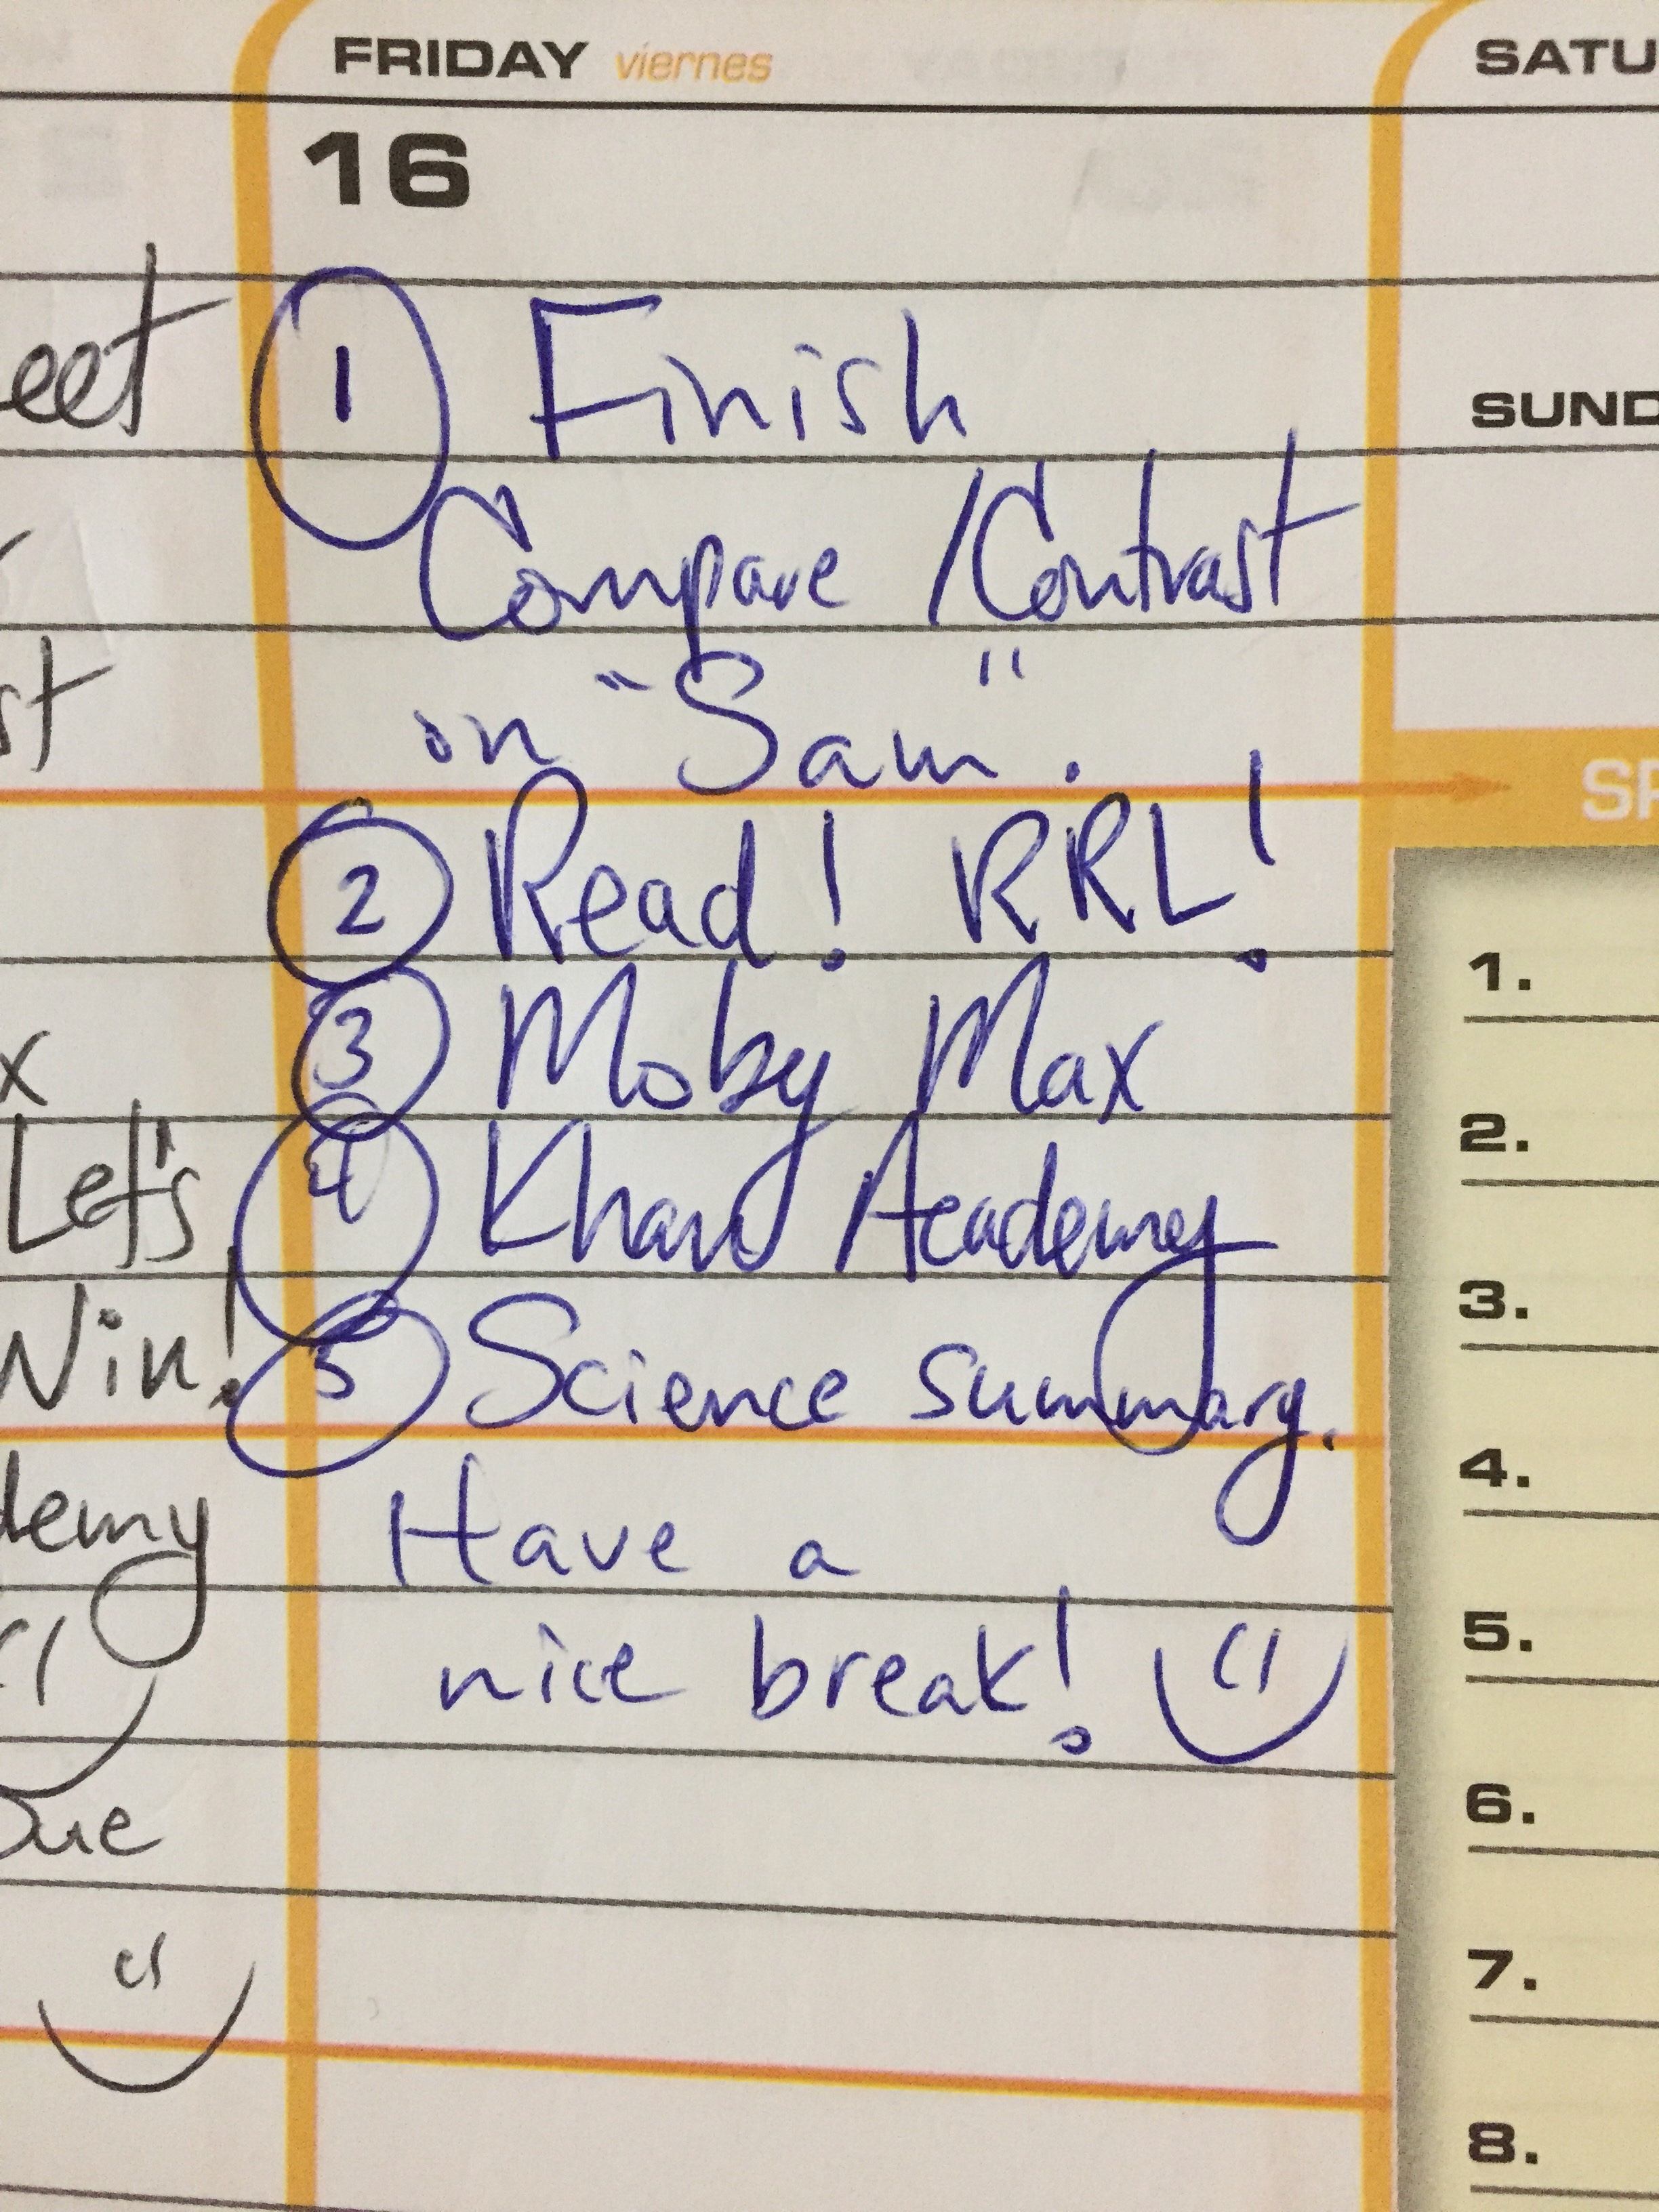 FRIDAY viernes
16
1 Finish
Compare / Contrast
on "Sam".
2 Read! RRL!
3 Moby Max
4 Khan Academy
5 Science summary.
Have a
nice break!
eet
st
x
Let's
Win!
demy
Due
SATU
SUND
SP
1.
2.
3.
4.
5.
6.
7.
8.